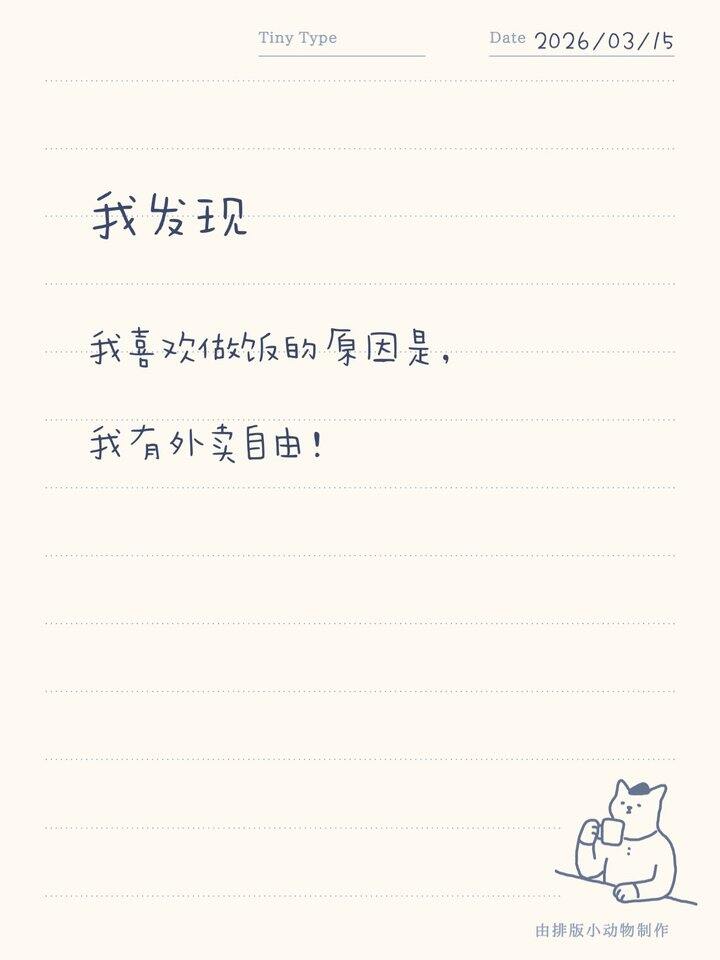 Tiny Type
Date 2026/03/15
我发现
我喜欢做饭的原因是，
我有外卖自由！
由排版小动物制作